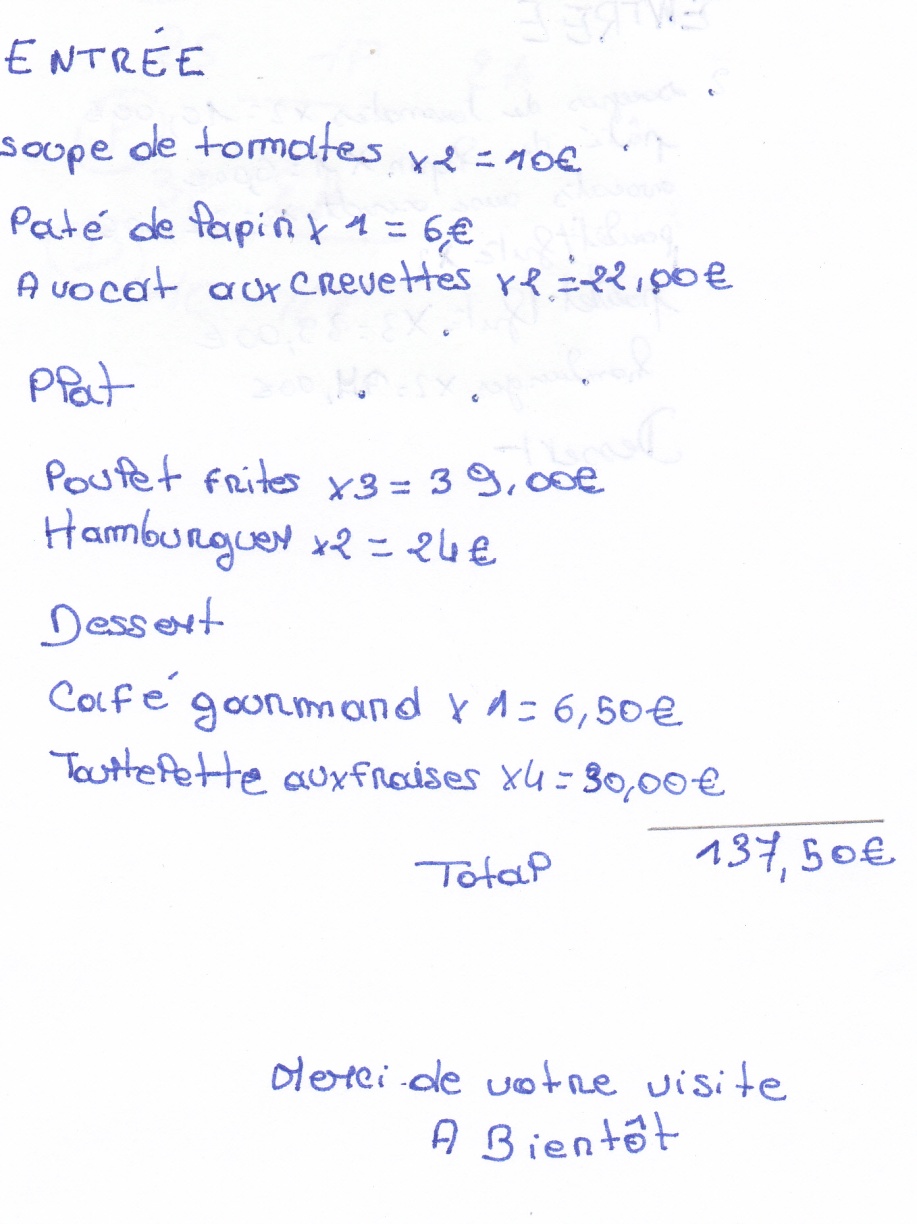 ENTRÉE
soupe de tomates x2 = 10€
Paté de lapin x 1 = 6€
Avocat aux crevettes x2 = 22,00€
Plat
Poulet frites x3 = 39,00€
Hamburguer x2 = 24€
Dessert
Café gourmand x 1 = 6,50€
Tarttelette aux fraises x4 = 30,00€
137,50€
Total
Merci de votre visite
A Bientôt